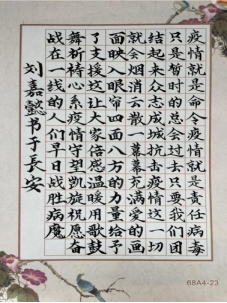 疫情就是命令疫情就是责任病毒
只是暂时的总会过去只要我们团
结起来众志成城抗击疫情这一切
就会烟消云散一幕幕充满爱的画
面映入眼帘四面八方的力量给予
了支援这让大家倍感温暖用歌鼓
舞祈祷心系疫情守望凯旋祝愿奋
战在一线的人们早日战胜病魔
刘嘉懿书于長安
68A4-23